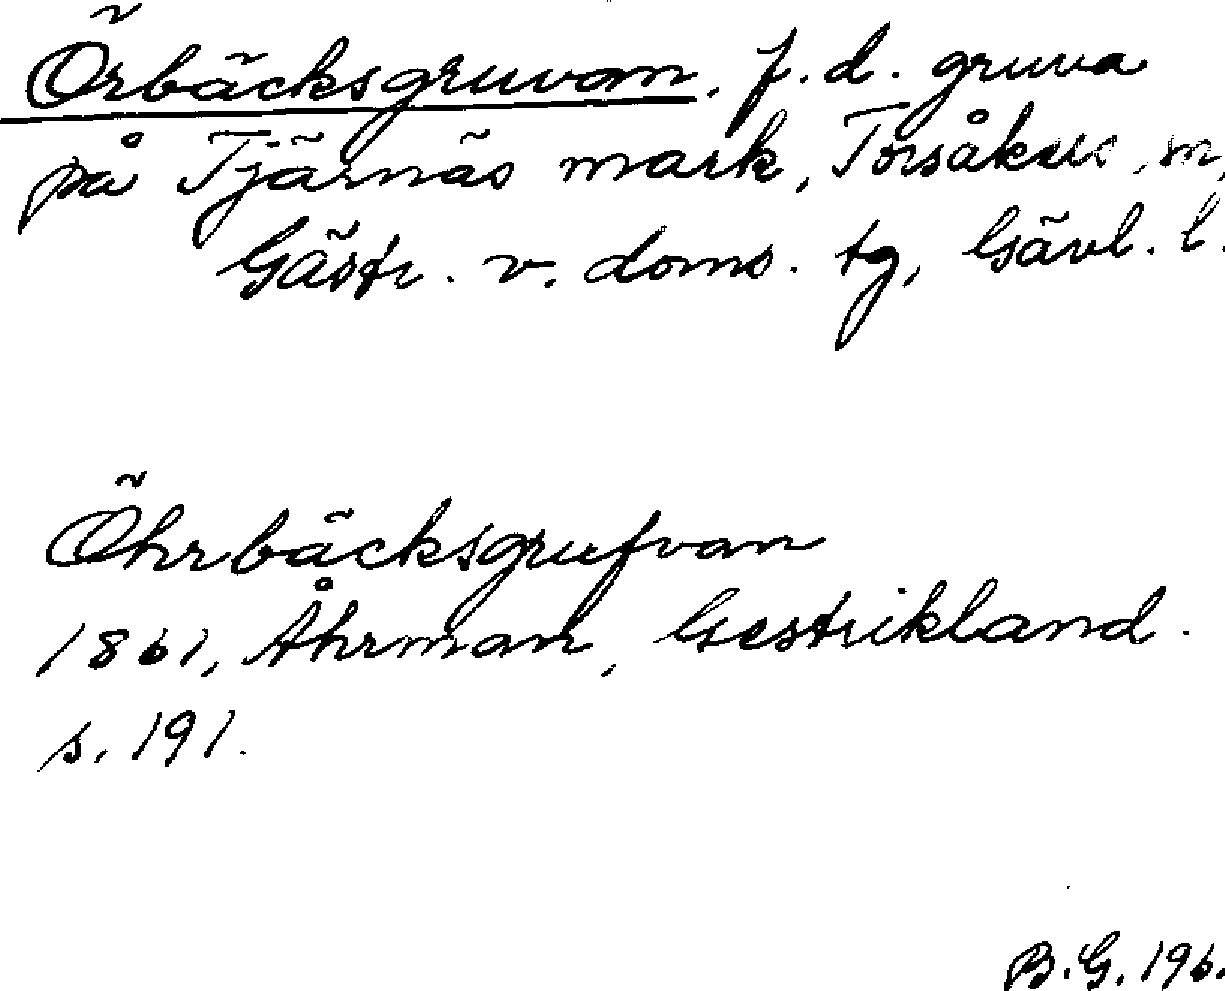 Örbäcksgruvan, f.d. gruva
på Tjärnäs mark, Torsåkers m,
Gästr. v. doms. tg, Gävl. l.
Öhrbäcksgrufvan
1861, Åhrman, Gestrikland.
s. 191.
B.G. 196.